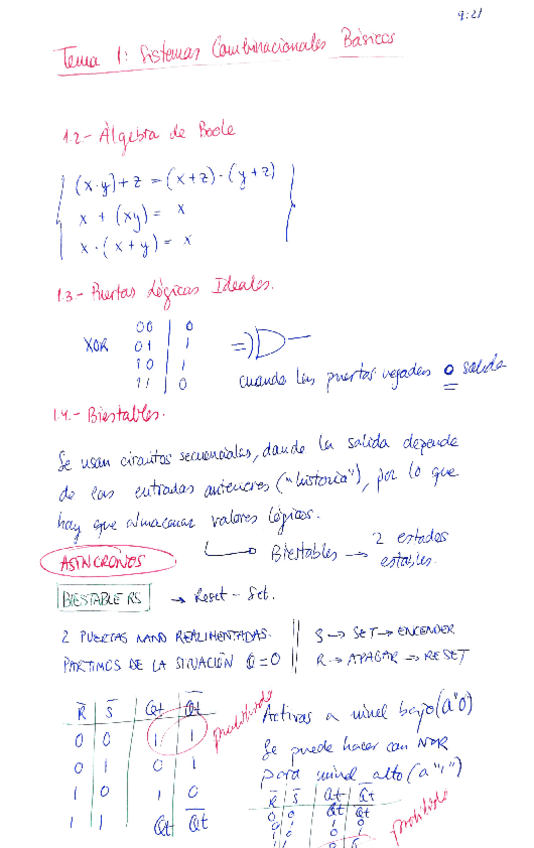 9:21
Tema 1: Sistemas Combinacionales Básicos
1.2.- Álgebra de Boole
(x·y)+z = (x+z)·(y+z)
x + (xy) = x
x·(x+y) = x
1.3.- Puertas Lógicas Ideales.
XOR
00 | 0
01 | 1
10 | 1
11 | 0
cuando las puertas negadas 0 salida
1.4.- Biestables.
Se usan circuitos secuenciales, donde la salida depende
de las entradas anteriores ("historia"), por lo que
hay que almacenar valores lógicos.
Biestables → 2 estados
estables.
ASÍNCRONOS
BIESTABLE RS → Reset - Set.
2 PUERTAS NAND REALIMENTADAS.
PARTIMOS DE LA SITUACIÓN Q=0
S → SET → ENCENDER
R → APAGAR → RESET
R̅ | S̅ | Qt | Q̅t̅
0 | 0 | 1 | 1 prohibido
0 | 1 | 0 | 1
1 | 0 | 1 | 0
1 | 1 | Qt | Q̅t̅
Activas a nivel bajo (a "0")
Se puede hacer con NOR
para nivel alto (a "1")
R̅ | S̅ | Qt | Q̅t̅
0 | 0 | Qt | Q̅t̅
prohibido